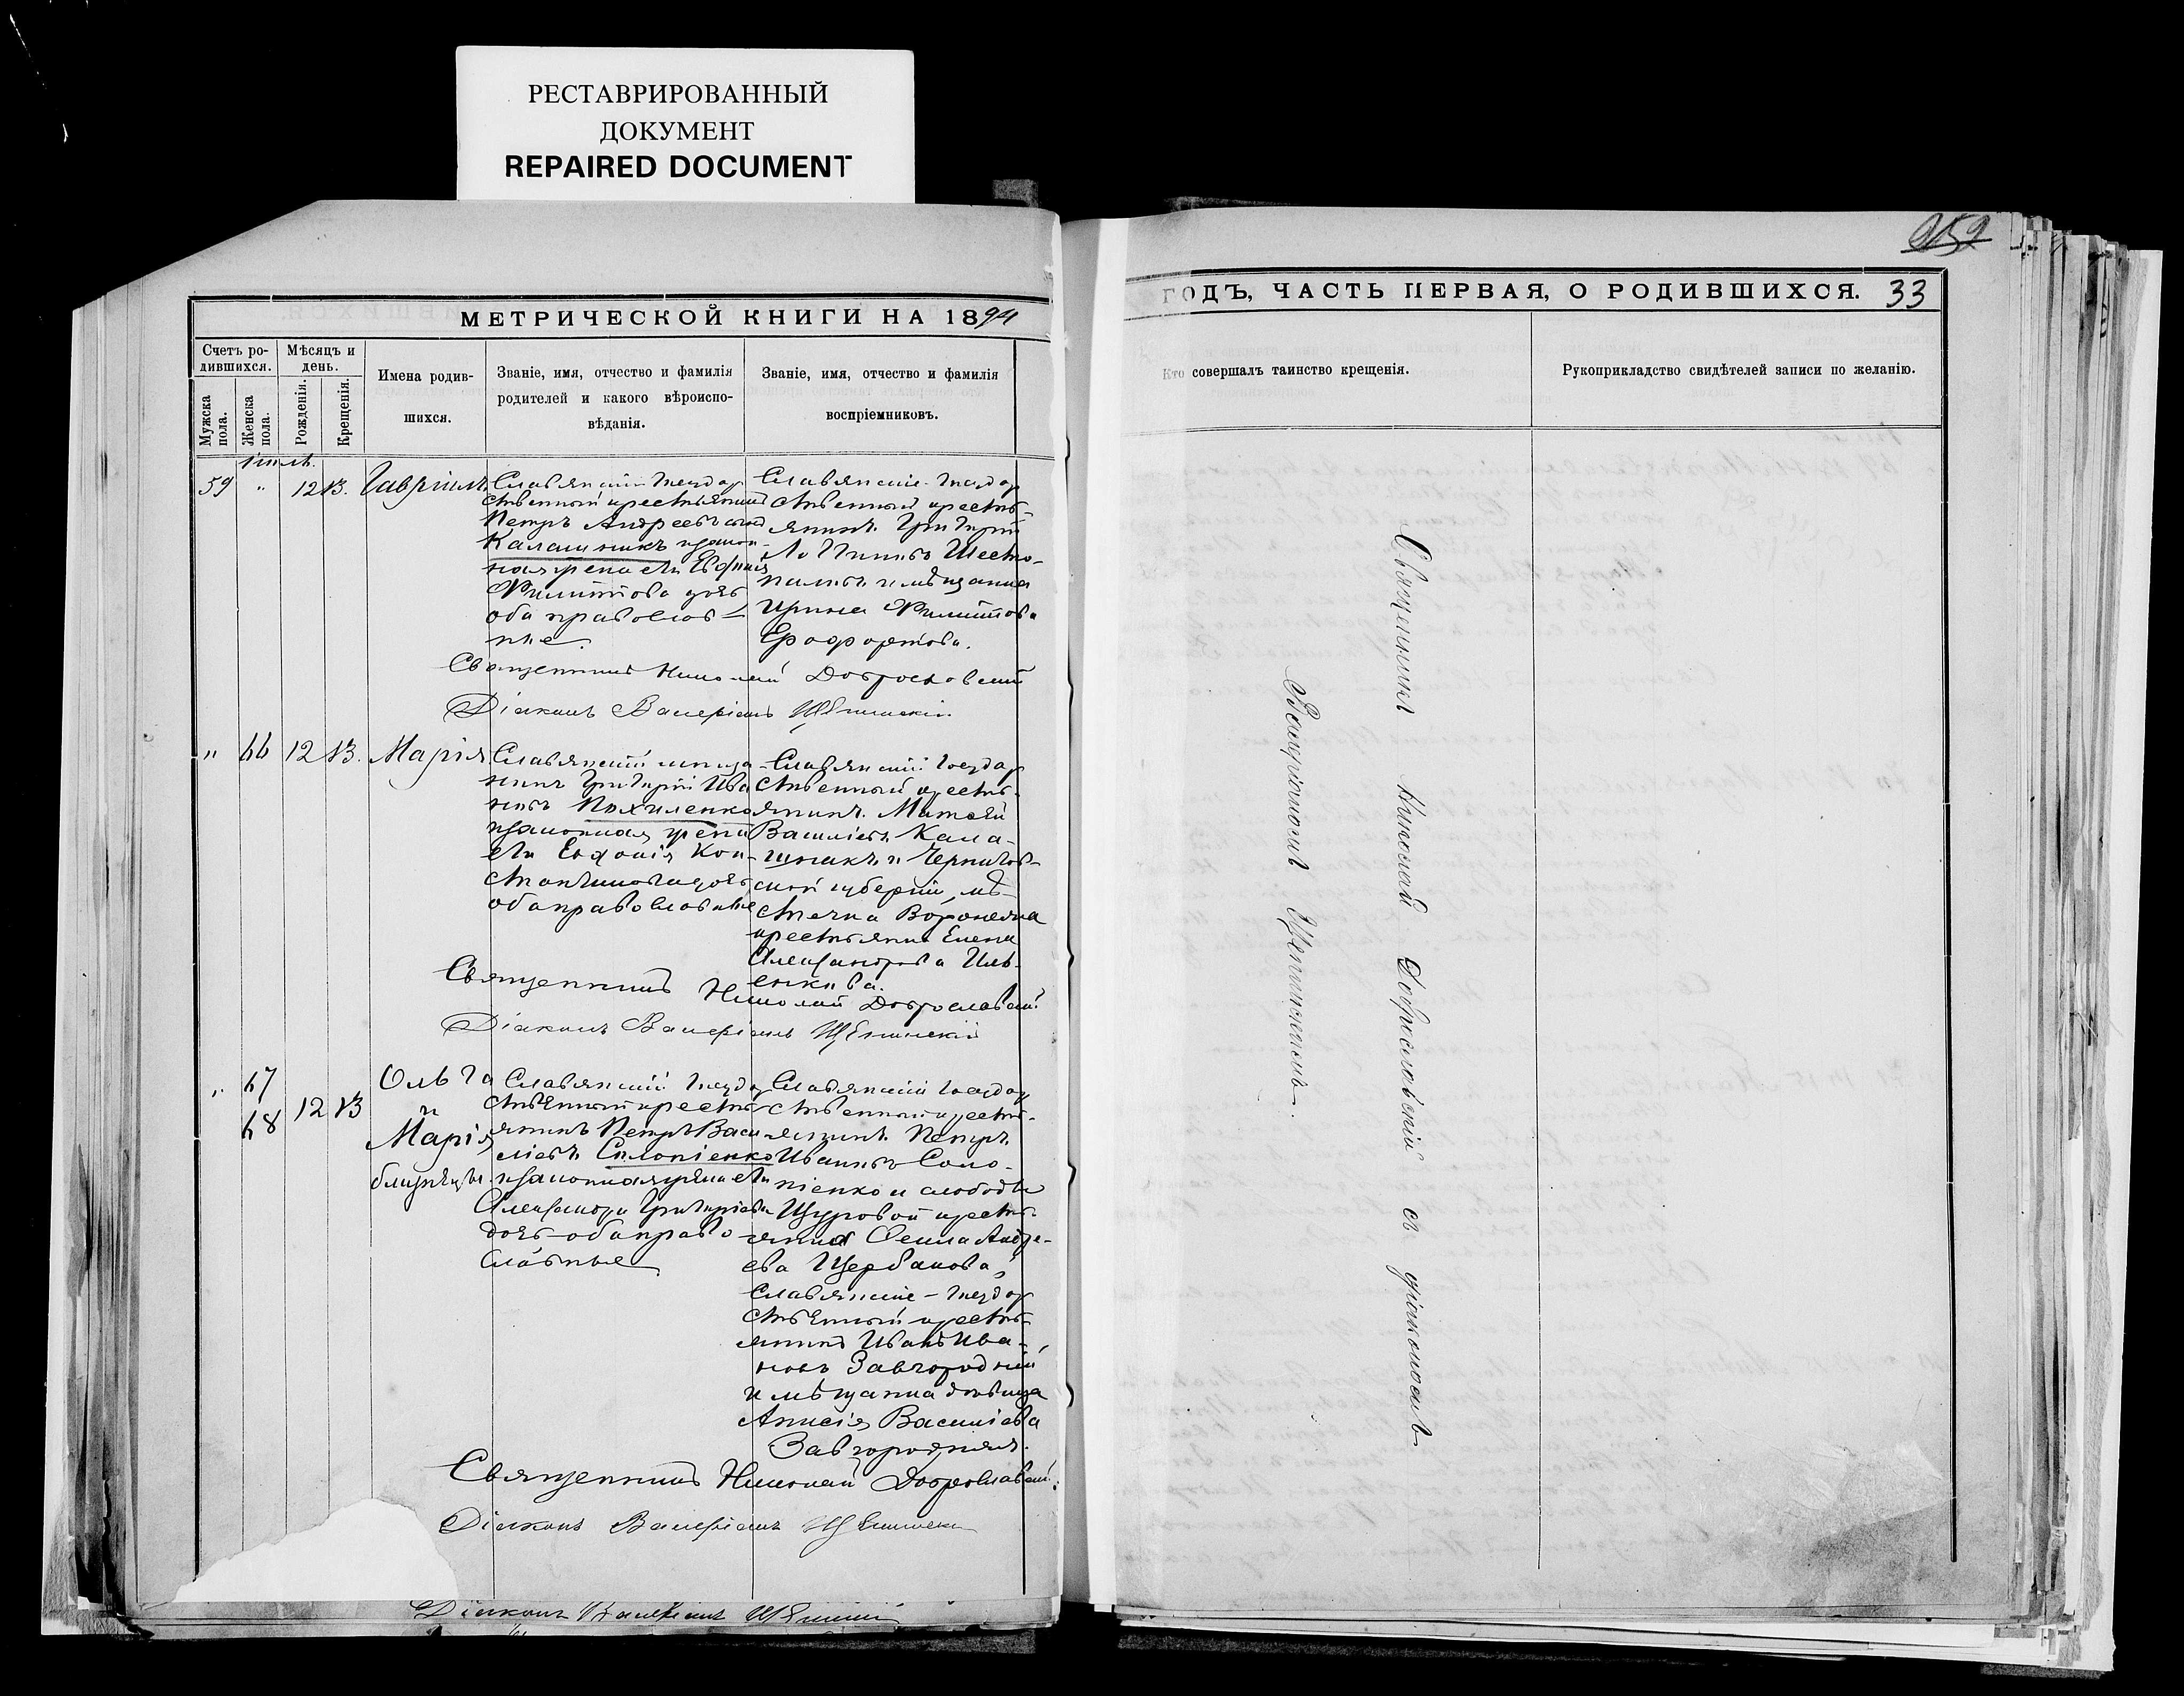 РЕСТАВРИРОВАННЫЙ
ДОКУМЕНТ
REPAIRED DOCUMENT
МЕТРИЧЕСКОЙ КНИГИ НА 1894
Счетъ ро-
дившихся.
Мужска
пола.
Женска
пола.
Мѣсяцъ и
день.
Рожденія.
Крещенія.
Имена родив-
шихся.
Званіе, имя, отчество и фамилія
родителей и какого вѣроиспо-
вѣданія.
Званіе, имя, отчество и фамилія
воспріемниковъ.
59 " 12 13. Гавріилъ
Славянскій государ
ственный крестьянинъ
Петръ Андреевъ
Калашникъ и закон-
ная жена его Евфимія
Филиппова дочь
оба православ-
ные.
Славянскіе государ
ственный кресть-
янинъ Григорій
Шесто-
паловъ и мѣщанка
Ирина Филиппова
Священникъ Николай Доброславскій
Діаконъ Валеріанъ Щепинскій
" 66 12 13. Марія
Славянскій мѣща-
нинъ Григорій Ива
новъ Похиленко
законная жена
его Евдокія Кон-
стантинова дочь
оба православные
Славянскій государ
ственный кресть-
янинъ Матвѣй
Василіевъ Кала-
шникъ и Чернигов-
ской губерніи, мѣ-
стечка Воронежа
крестьянка Елена
Александрова Иль-
енкова.
Священникъ Николай Доброславскій
Діаконъ Валеріанъ Щепинскій
" 67
68 12 13
Ольга
и
Марія
близнецы
Славянскій государ
ственный кресть
янинъ Петръ Васи
ліевъ Солопіенко
законная жена его
Александра Григоріева
дочь оба право
славные
Славянскій государ
ственный кресть-
янинъ Петръ
Ивановъ Соло-
піенко и слободы
Щуровой кресть-
янка Андре-
ева Щербакова,
Славянскіе государ
ственный кресть-
янинъ Иванъ Ива-
новъ Завгородній
и мѣщанка дѣвица
Анисія Василіева
Завгородняя.
Священникъ Николай Доброславскій
Діаконъ Валеріанъ Щепинскій
Діаконъ Валеріанъ Щепинскій
ГОДЪ, ЧАСТЬ ПЕРВАЯ, О РОДИВШИХСЯ. 33
Кто совершалъ таинство крещенія.
Рукоприкладство свидѣтелей записи по желанію.
Священникъ Николай Доброславскій съ діакономъ
Валеріаномъ Щепинскимъ.